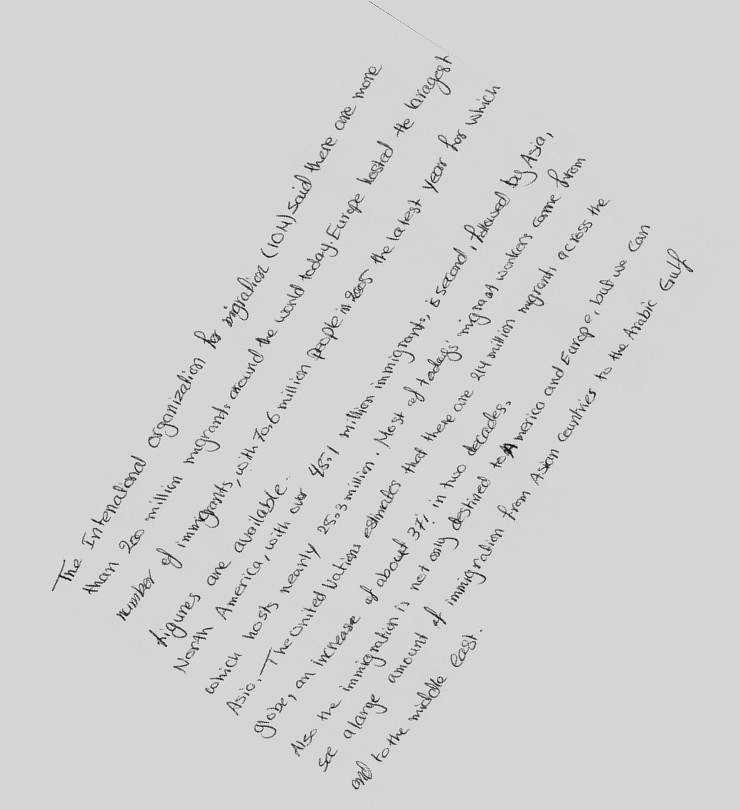 The Intenational organization for migration (IOM) said there are more
than 200 million migrants around the world today. Europe hosted the largest
number of immigrants, with 70.6 million people in 2005 the latest year for which
figures are available.
North America, with over 45.1 million immigrants, is second, followed by Asia,
which hosts nearly 25.3 million. Most of today's migrant workers come from
Asia. The United Nations estimates that there are 214 million migrants across the
globe, an increase of about 37% in two decades.
Also the immigration is not only destined to America and Europe, but we can
see a large amount of immigration from Asian countries to the Arabic Gulf
and to the middle east.